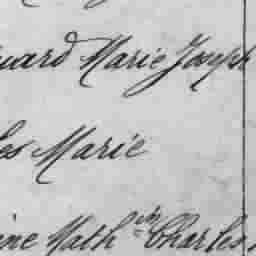 uard Marie Joseph
les Marie
ine Math Charles